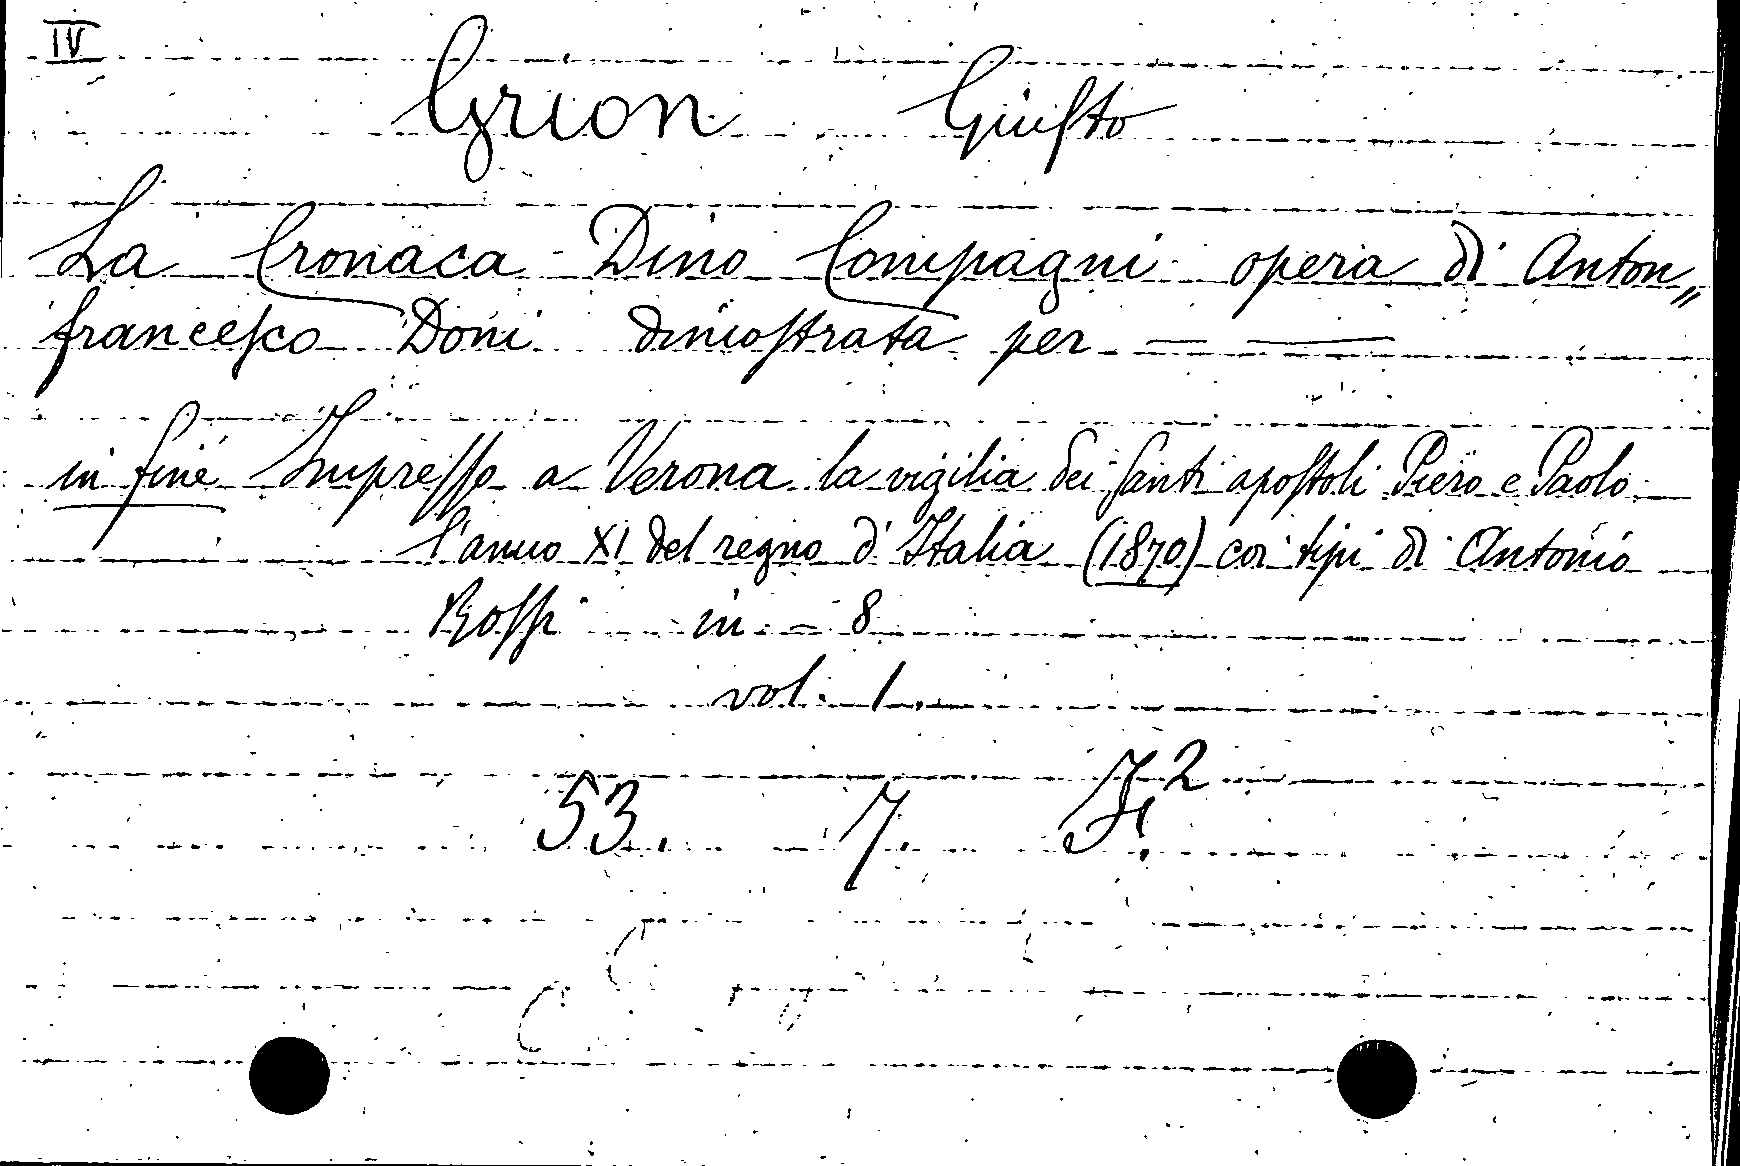 IV
Grion Giusto
La Cronaca Dino Compagni opera di Anton„
francesco Doni dimostrata per — ——
in fine Impresso a Verona la vigilia dei santi apostoli Piero e Paolo
l'anno XI del regno d'Italia (1870) coi tipi di Antonio
Rossi in - 8
vol. 1.
53. 7. F.²